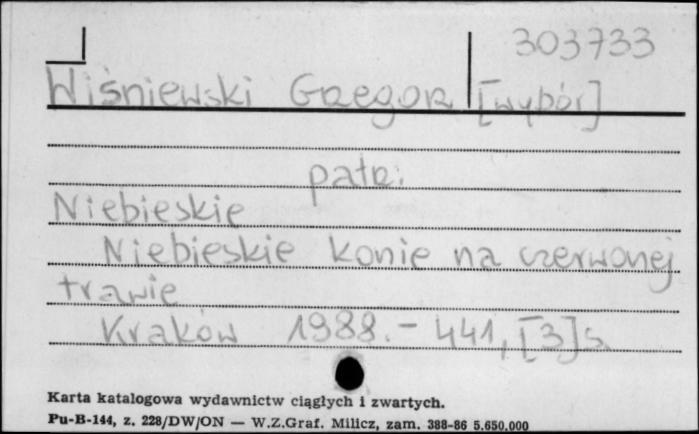 303733
Wiśniewski Grzegorz [wybór]
patrz:
Niebieskie
Niebieskie konie na czerwonej
trawie
Kraków 1988. - 441, [3] s.
Karta katalogowa wydawnictw ciągłych i zwartych.
Pu-B-144, z. 228/DW/ON — W.Z.Graf. Milicz, zam. 388-86 5.650.000